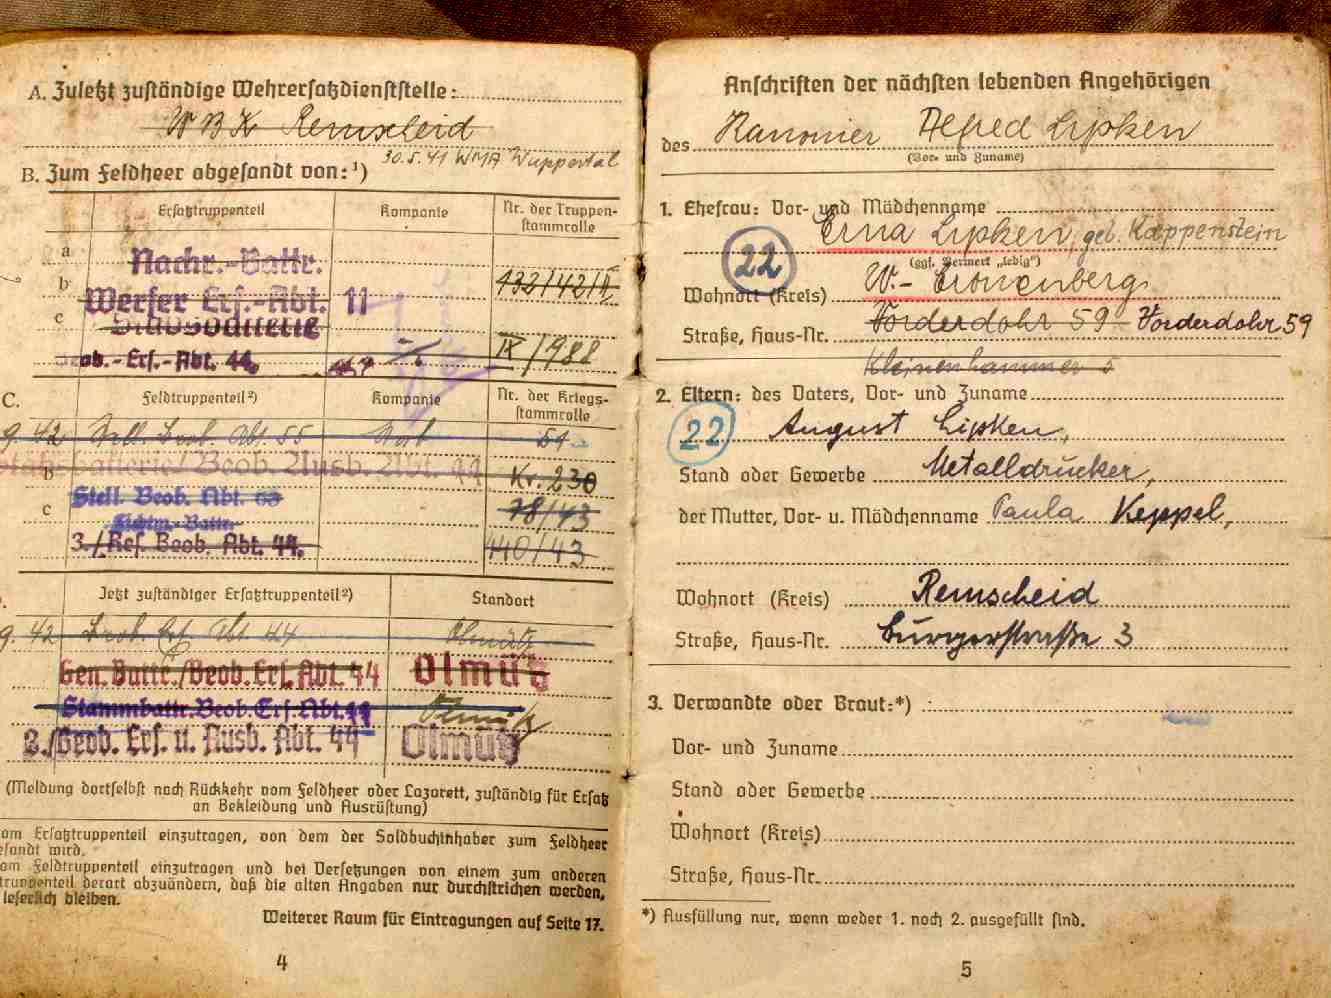 A. Zuletzt zuständige Wehrersatzdienststelle:
W B K Remscheid
30.5.41 WMA Wuppertal
B. Zum Feldheer abgesandt von: ¹)
Ersatztruppenteil Kompanie Nr. der Truppen-
stammrolle
a Nachr.-Battr.
b 132/42/
Werfer Ers.-Abt. 11
c Stabsbatterie
Beob.-Ers.-Abt. 44 IX/988
C. Feldtruppenteil ²) Kompanie Nr. der Kriegs-
stammrolle
9.42 Beob. Abt. 55 51
batterie/Beob. Ausb. Abt. 44
b Kr. 230
Stell. Beob. Abt.
c 78/43
Lichtm.-Battr.
3./Res. Beob. Abt. 44. 440/43
Jetzt zuständiger Ersatztruppenteil ²) Standort
9.42 Beob. Ers. Abt 44 Olmütz
Gen. Battr./Beob. Ers. Abt. 44 Olmütz
Stammbattr. Beob. Ers. Abt. 44 Olmütz
2./Beob. Ers. u. Ausb. Abt. 44 Olmütz
(Meldung dortselbst nach Rückkehr vom Feldheer oder Lazarett, zuständig für Ersatz
an Bekleidung und Ausrüstung)
om Ersatztruppenteil einzutragen, von dem der Soldbuchinhaber zum Feldheer
esandt wird.
om Feldtruppenteil einzutragen und bei Versetzungen von einem zum anderen
truppenteil derart abzuändern, daß die alten Angaben nur durchstrichen werden,
leserlich bleiben.
Weiterer Raum für Eintragungen auf Seite 17.
4
Anschriften der nächsten lebenden Angehörigen
des Kanonier Alfred Lipken
(Vor- und Zuname)
1. Ehefrau: Vor- und Mädchenname
Erna Lipken, geb. Kaeppenstein
22
(ggf. Vermerk „ledig")
Wohnort (Kreis) W.- Cronenberg
Straße, Haus-Nr. Vorderdohr 59 Vorderdohr 59
Kleinenhammer 5
2. Eltern: des Vaters, Vor- und Zuname
22 August Lipken,
Stand oder Gewerbe Metalldrücker,
der Mutter, Vor- u. Mädchenname Paula Keppel,
Wohnort (Kreis) Remscheid
Straße, Haus-Nr. Burgerstraße 3
3. Verwandte oder Braut: *)
Vor- und Zuname
Stand oder Gewerbe
Wohnort (Kreis)
Straße, Haus-Nr.
*) Ausfüllung nur, wenn weder 1. noch 2. ausgefüllt sind.
5